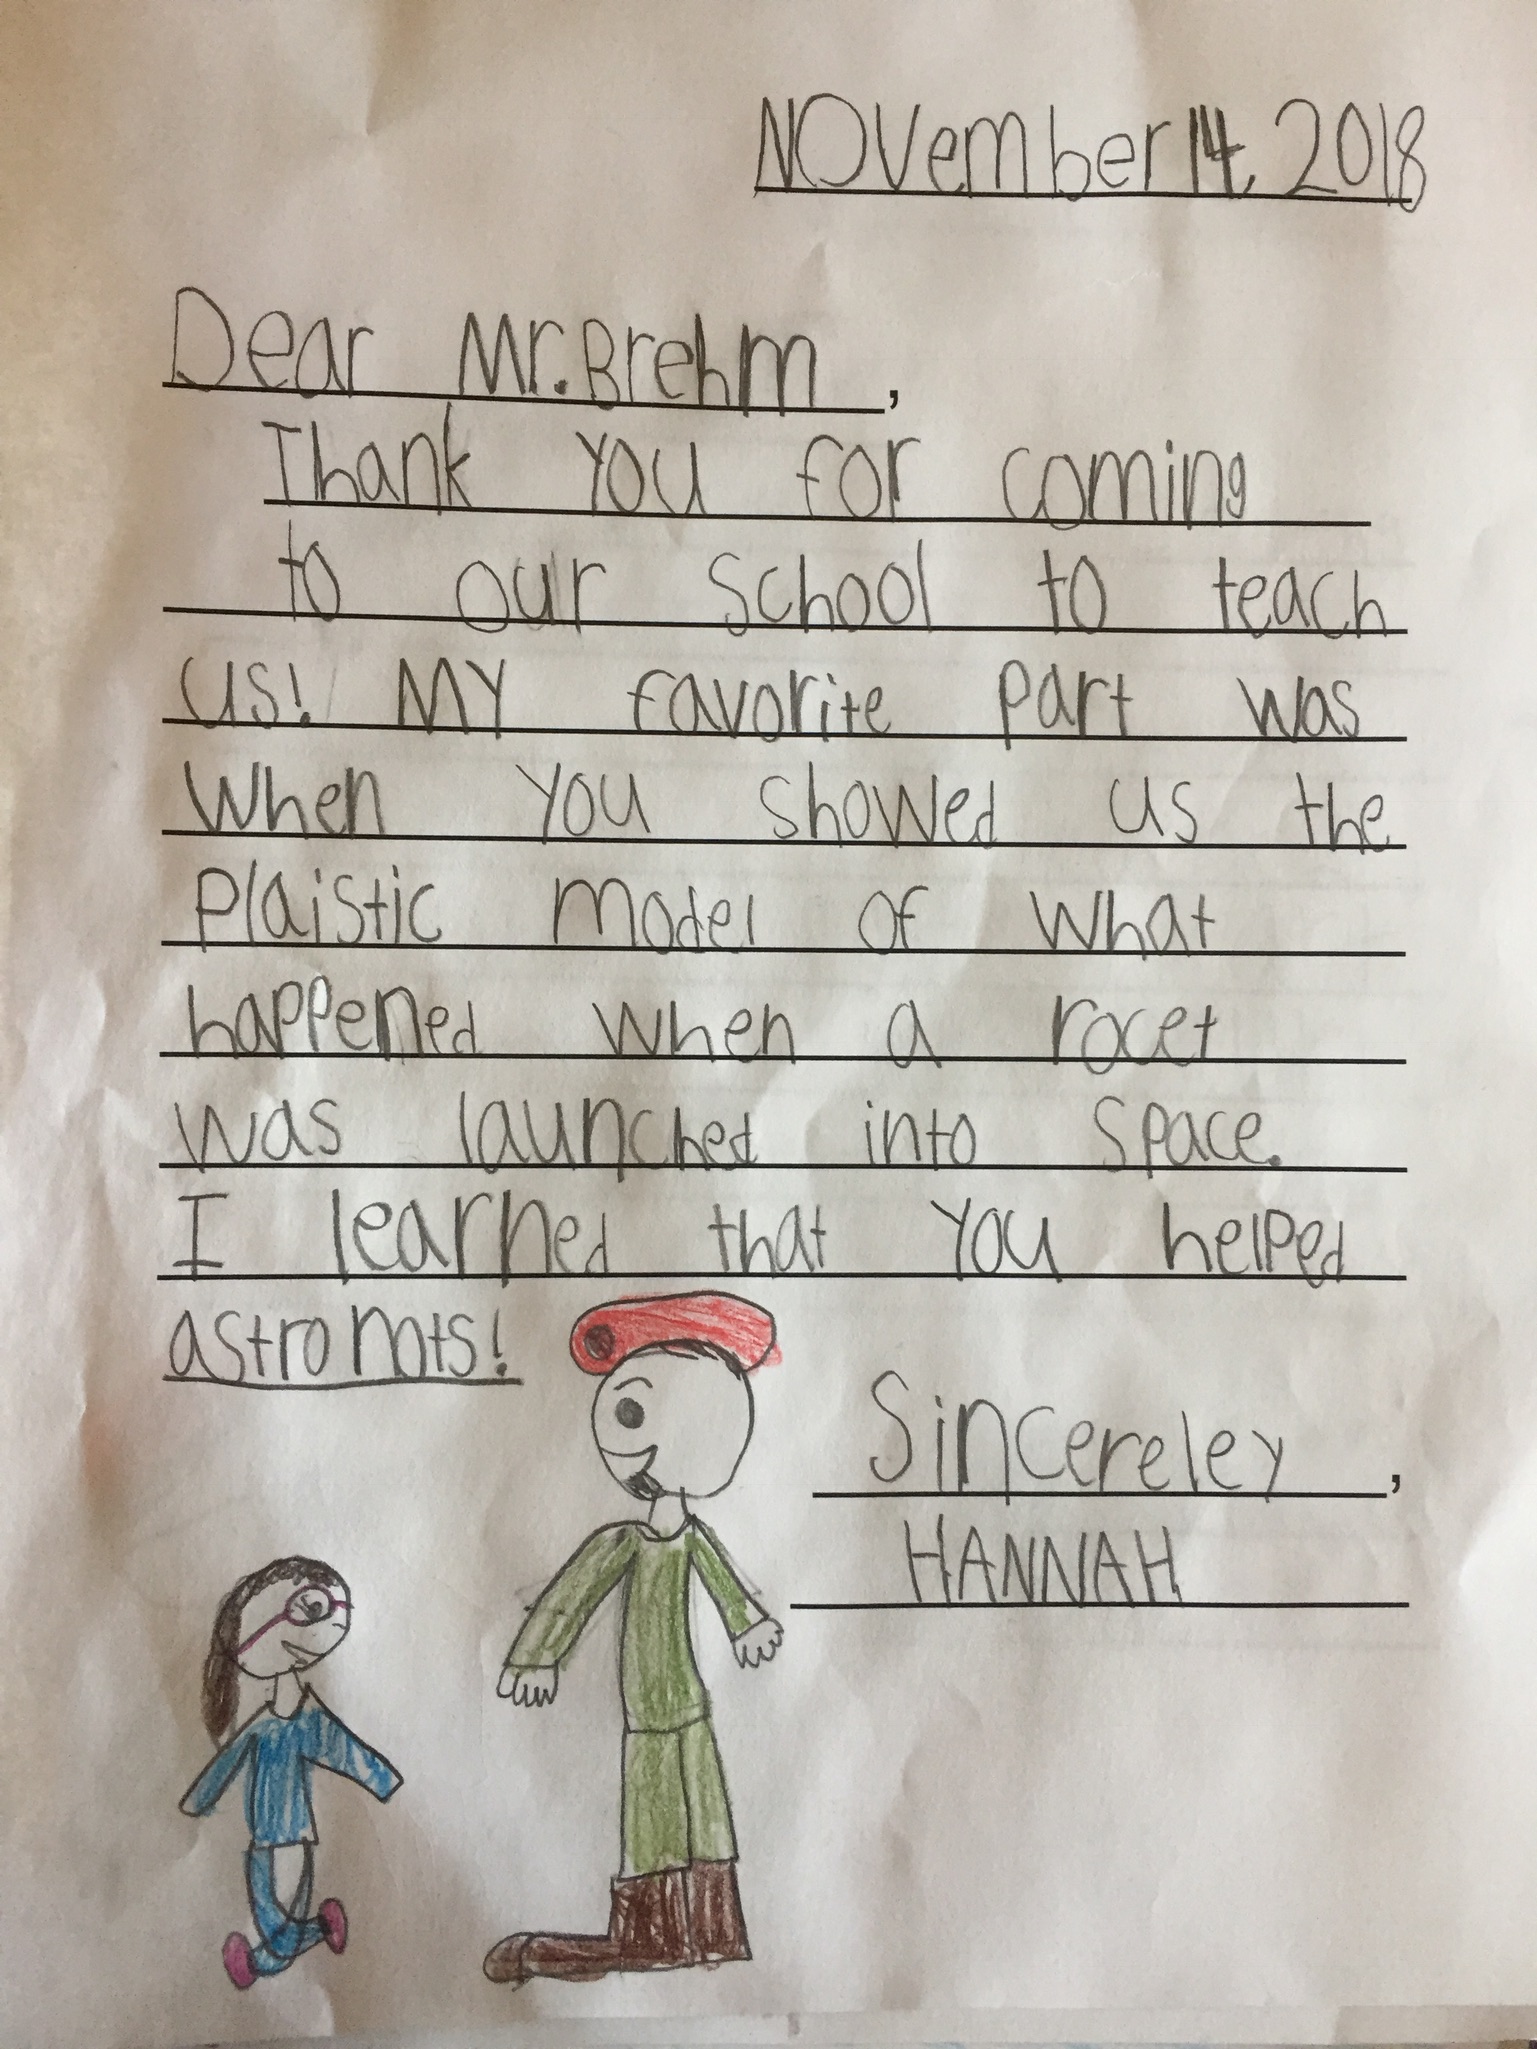 November 14, 2018
Dear Mr. Brehm,
Thank you for coming
to our school to teach
us! My favorite part was
When you showed us the
Plaistic model of what
happened when a rocet
was launched into space.
I learned that you helped
astronots!
Sincereley,
HANNAH